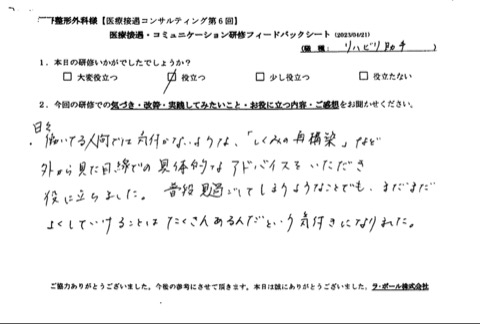 整形外科様【医療接遇コンサルティング第6回】
医療接遇・コミュニケーション研修フィードバックシート (2023/04/21)
（職種： リハビリ助手 ）
1．本日の研修いかがでしたでしょうか？
□ 大変役立つ □ 役立つ □ 少し役立つ □ 役立たない
2．今回の研修での気づき・改善・実践してみたいこと・お役に立つ内容・ご感想をお聞かせください。
日々
・働いてる人間では気付かないような、「しくみの再構築」など
外から見た目線での具体的なアドバイスをいただき
役に立ちました。普段見過ごしてしまうようなことでも、まだまだ
よくしていけることはたくさんあるんだという気付きになりました。
ご協力ありがとうございました。今後の参考にさせて頂きます。本日は誠にありがとうございました。ラ・ポール株式会社